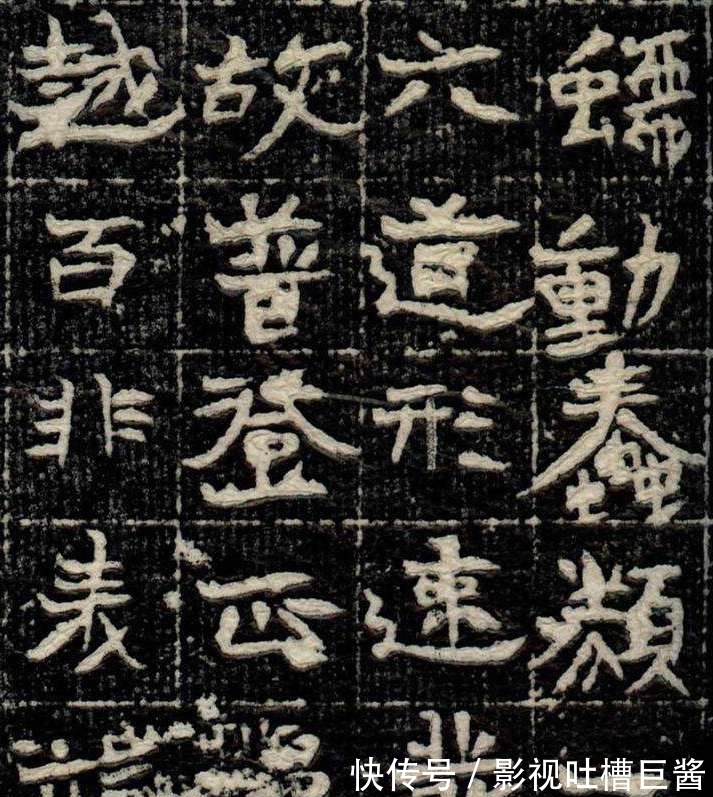 蠕動蠢類
六道形速
故普登正
越百非表
快传号 / 影视吐槽巨酱